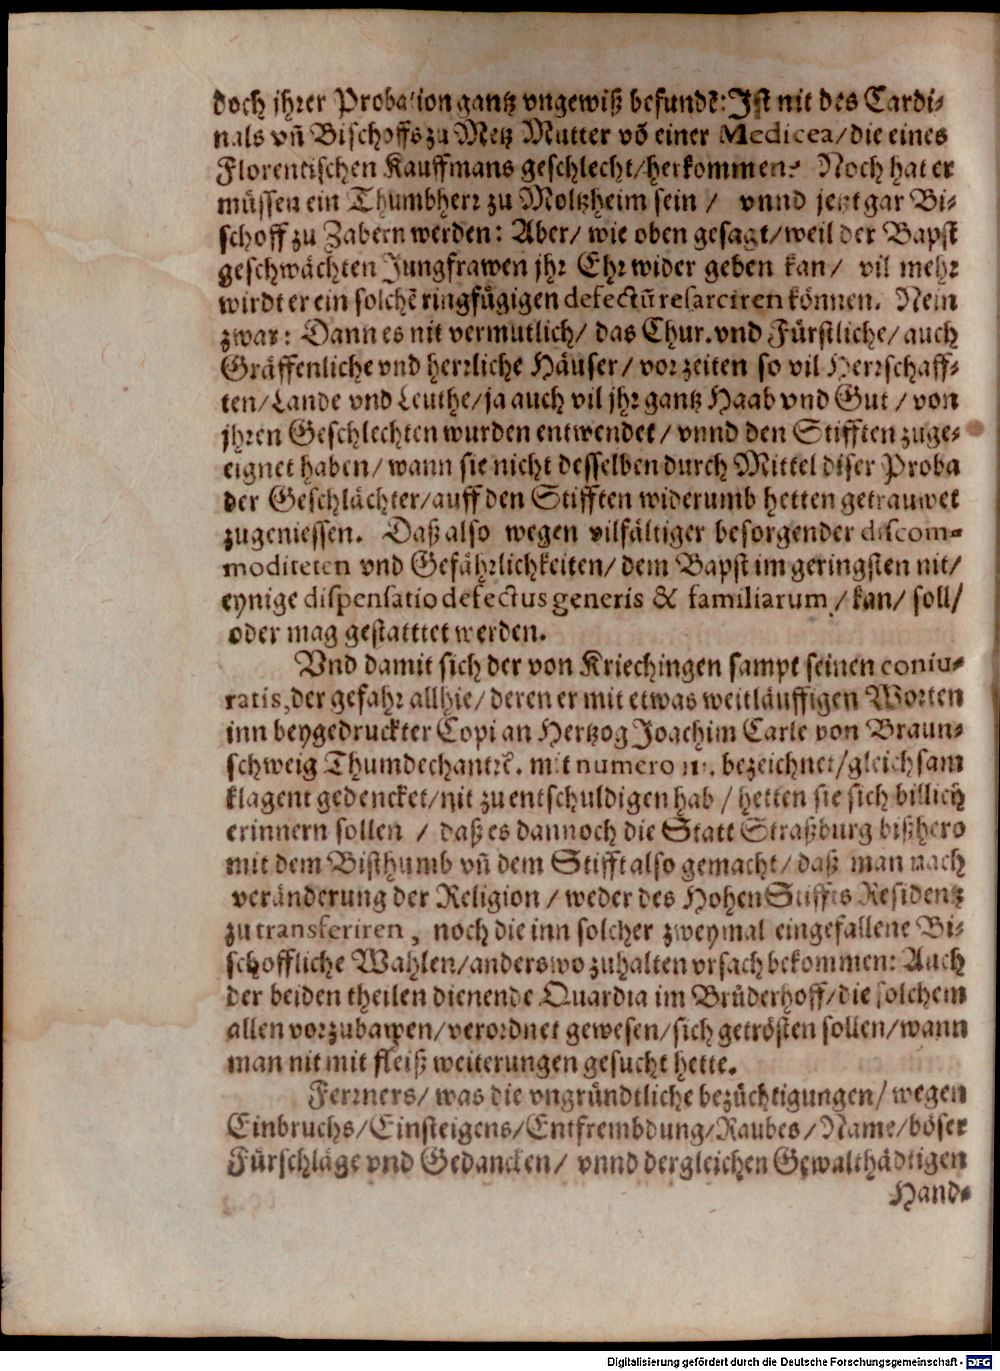 doch jhrer Probation gantz vngewiß befundē: Ist nit des Cardi-
nals vñ Bischoffs zu Metz Mutter vō einer Medicea/die eines
Florentischen Kauffmans geschlecht/herkommen? Noch hat er
müssen ein Thumbherr zu Moltzheim sein / vnnd jetzt gar Bi-
schoff zu Zabern werden: Aber/ wie oben gesagt/weil der Bapst
geschwächten Jungfrawen jhr Ehr wider geben kan/ vil mehr
wirdt er ein solchē ringfügigen defectū resarciren können. Nein
zwar: Dann es nit vermutlich/ das Chur. vnd Fürstliche/ auch
Gräffenliche vnd herrliche Häuser/ vor zeiten so vil Herrschaff-
ten/Lande vnd Leuthe/ja auch vil jhr gantz Haab vnd Gut / von
jhren Geschlechten wurden entwendet/ vnnd den Stifften zuge-
eignet haben/ wann sie nicht desselben durch Mittel diser Proba
der Geschlächter/auff den Stifften widerumb hetten getrauwet
zugeniessen. Daß also wegen vilfältiger besorgender discom-
moditeten vnd Gefährlichkeiten/ dem Bapst im geringsten nit/
eynige dispensatio defectus generis & familiarum / kan/ soll/
oder mag gestatttet werden.
Vnd damit sich der von Kriechingen sampt seinen coniu-
ratis, der gefahr allhie/ deren er mit etwas weitläuffigen Worten
inn beygedruckter Copi an Hertzog Joachim Carle von Braun-
schweig Thumdechant rc. mit numero bezeichnet/gleichsam
klagent gedencket/nit zu entschuldigen hab / hetten sie sich billich
erinnern sollen / daß es dannoch die Statt Straßburg bißhero
mit dem Bisthumb vñ dem Stifft also gemacht/ daß man nach
veränderung der Religion / weder des Hohen Stiffts Residentz
zu transferiren, noch die inn solcher zweymal eingefallene Bi-
schoffliche Wahlen/anderswo zuhalten vrsach bekommen: Auch
der beiden theilen dienende Quardia im Brüderhoff/die solchem
allen vorzubawen/verordnet gewesen/sich getrösten sollen/wann
man nit mit fleiß weiterungen gesucht hette.
Ferrners/ was die vngründtliche bezüchtigungen/ wegen
Einbruchs/Einsteigens/Entfrembdung/Raubes/Name/böser
Fürschläge vnd Gedancken/ vnnd dergleichen Gewalthädtigen
Hand-
Digitalisierung gefördert durch die Deutsche Forschungsgemeinschaft - DFG